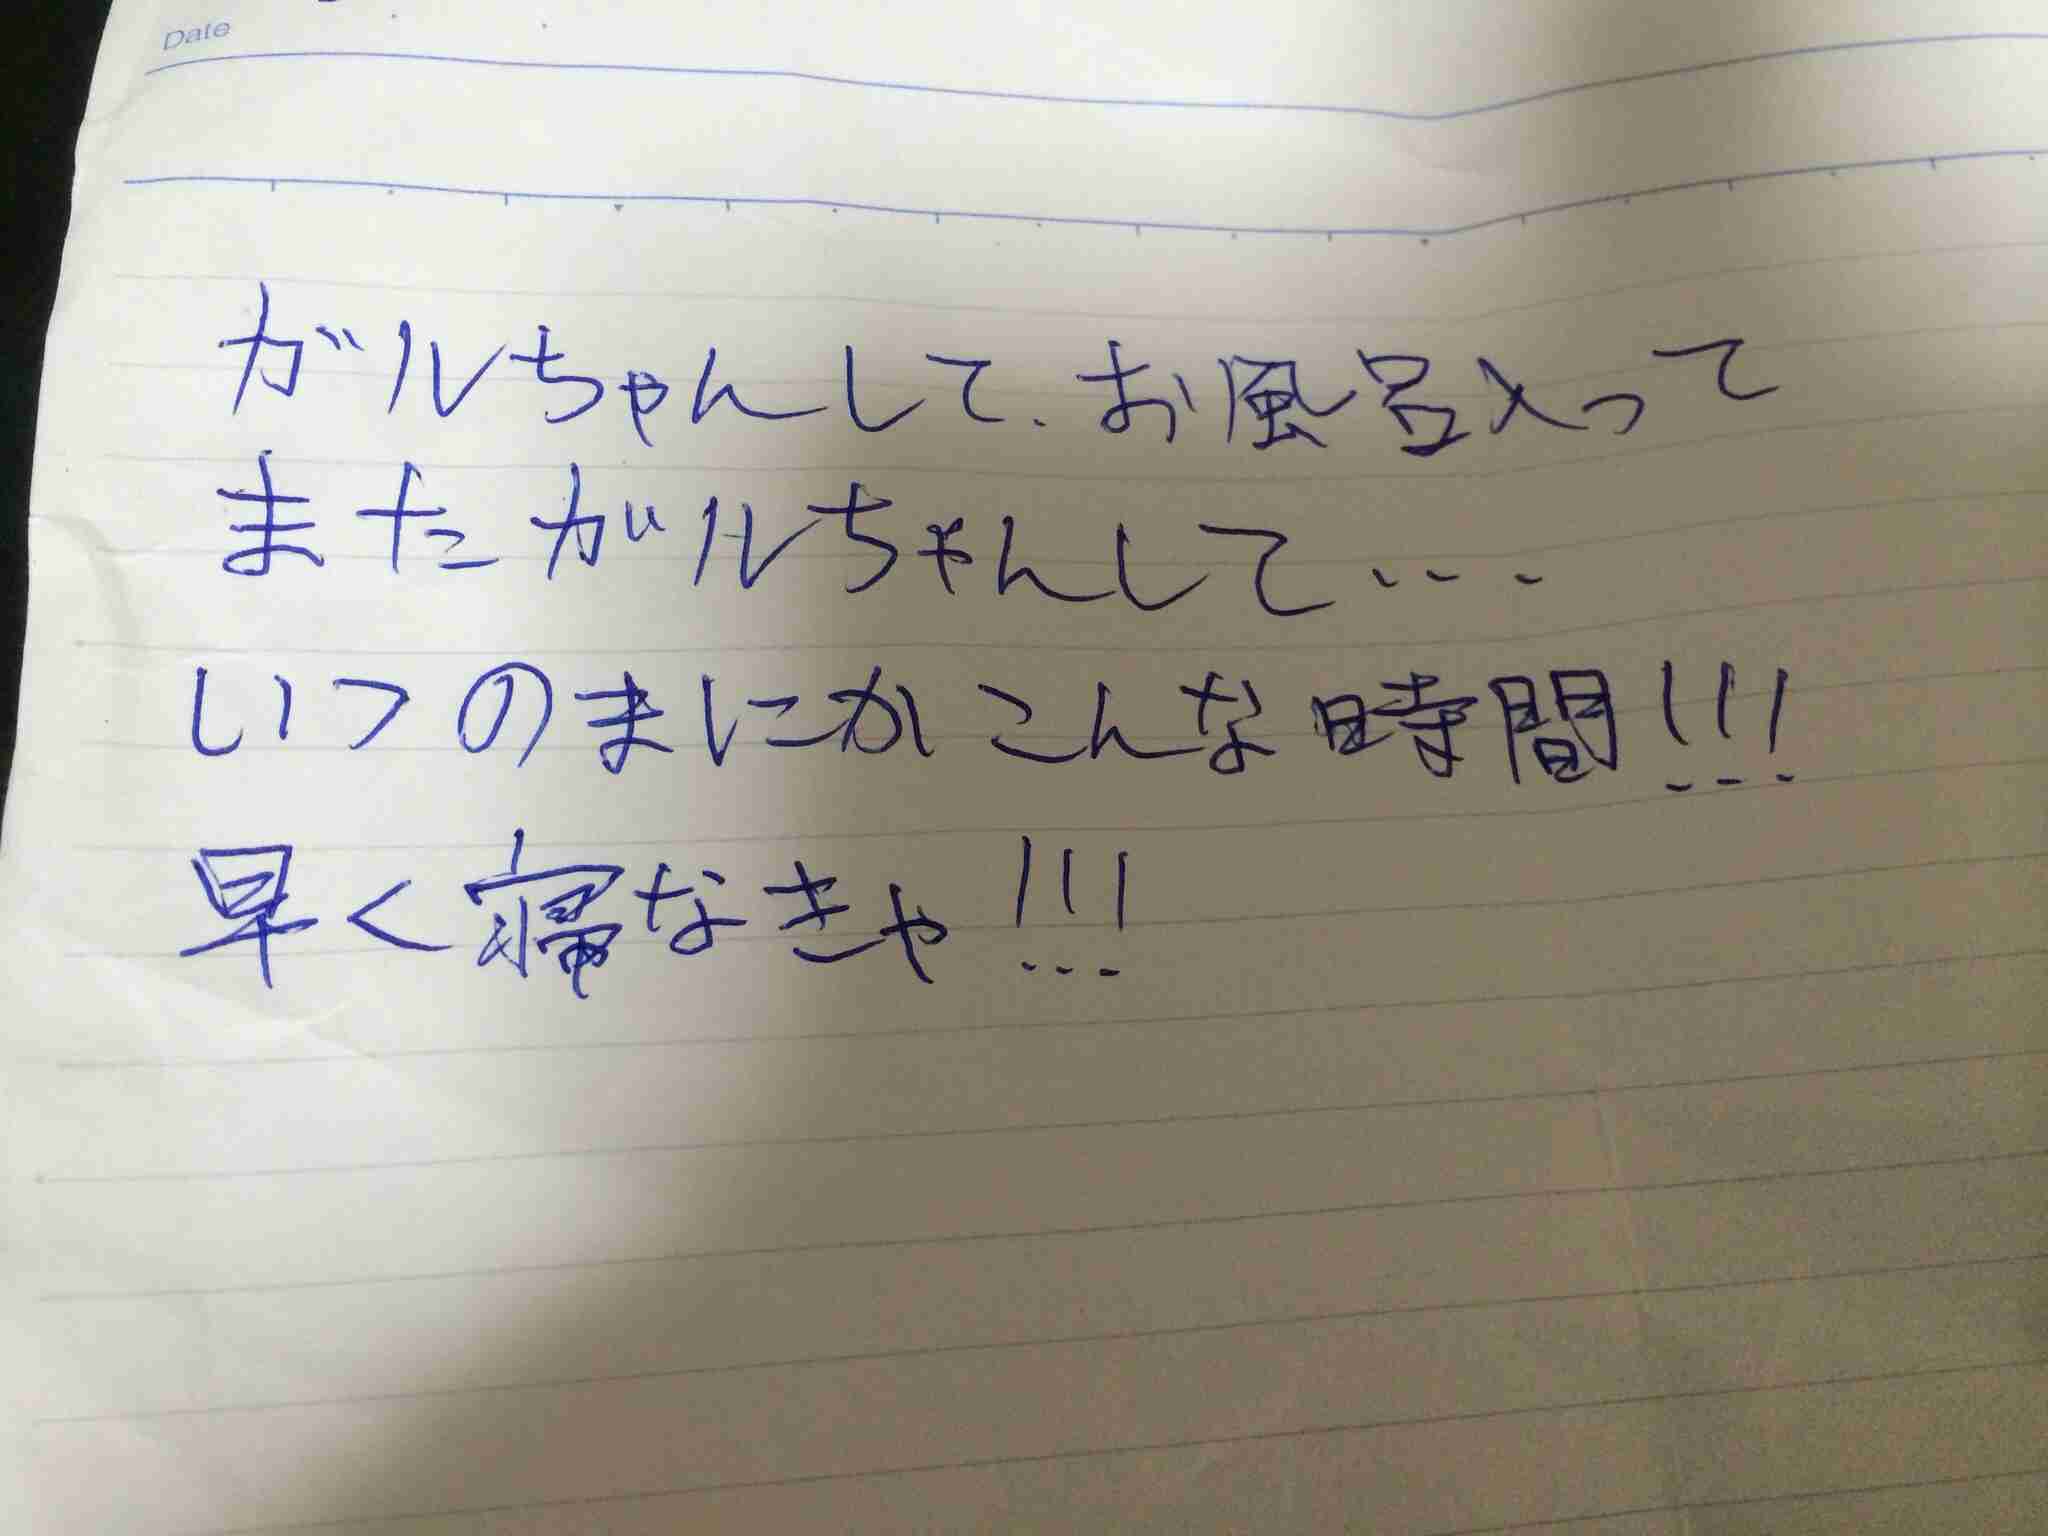 Date
ガルちゃんして、お風呂入って
またガルちゃんして・・・
いつのまにかこんな時間!!!
早く寝なきゃ!!!